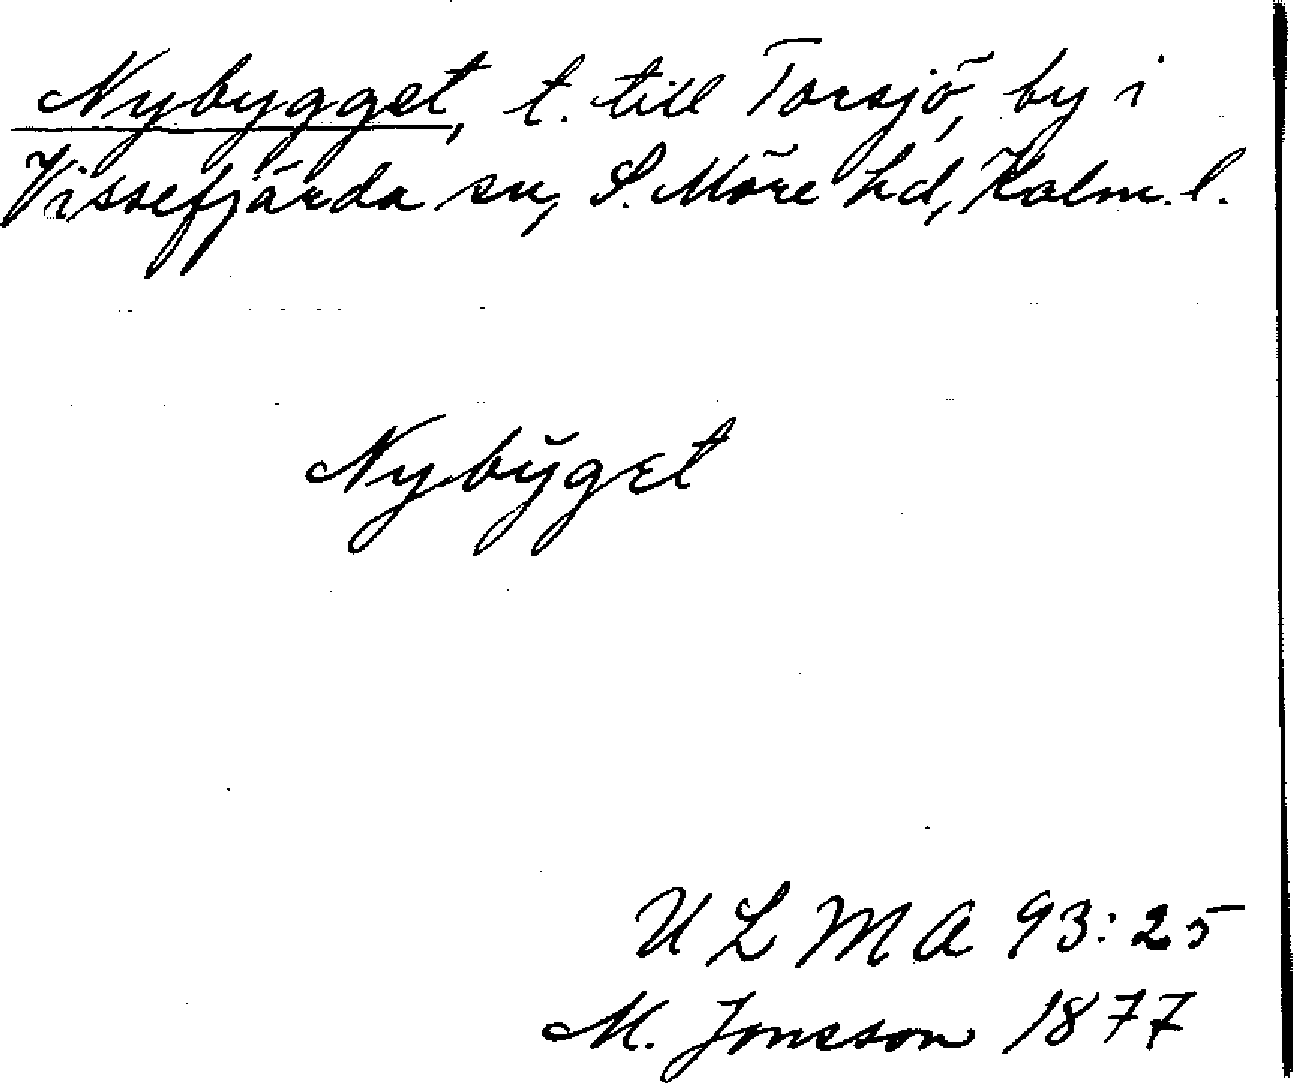 Nybygget, t. till Torsjö, by i
Vissefjärda sn, S. Möre hd, Kalm. l.
Nyby̆gɛt
ULMA 93:25
M. Jonsson 1877